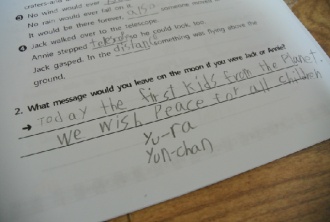 ③ No wind would ever
No rain would ever fall on it
It would be there forever,
④ Jack walked over to the telescope.
Annie stepped so he could look too.
Jack gasped. In the distance something was flying above the
ground.
2. What message would you leave on the moon if you were Jack or Annie?
→ Today the first kids from the Planet.
We wish Peace for all children
Yu-ra
Yun-chan